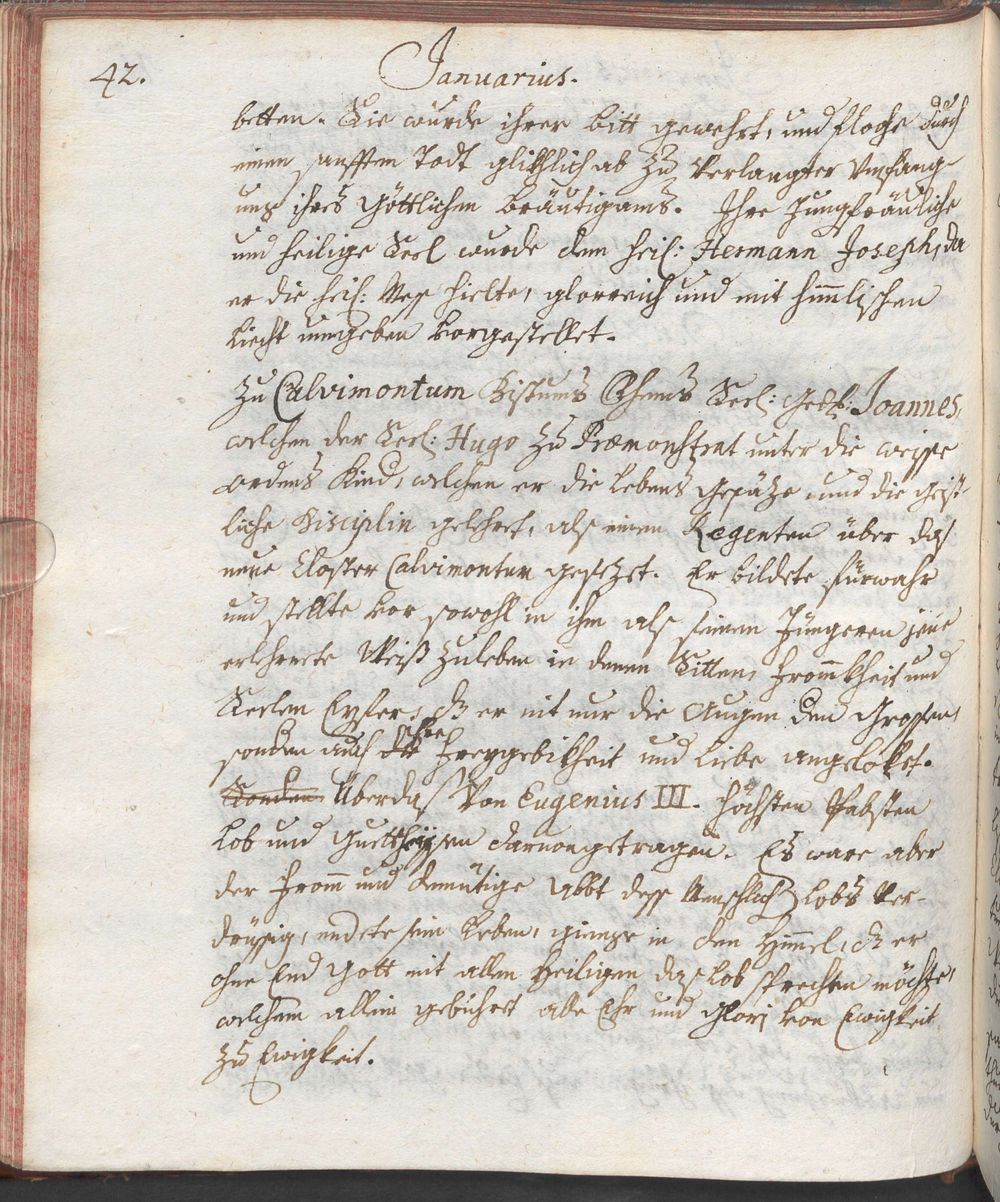 42. Januarius.
betten. Sie wurde ihrer bitt gewehrt, und floge durch
einen sanfften Todt glicklich ab zu verlangter Umfang-
ung ihres Göttlichen bräutigams. Ihre Jungfräuliche
und heilige Seel wurde dem heil: Hermann Joseph, da
er die heil: Mess hielte, glorreich und mit himmlischen
liecht umgeben vorgestellet.
Zu Calvimontum Bistums Rhems Seel: Ged: Joannes,
welchen der Seel: Hugo zu Præmonstrat unter die weisse
ordens Kind, welchen er die lebens gesätze und die geist-
liche Disciplin gelehret, als einen Regenten über das
neue Closter Calvimontum gesezet. Er bildete fürwahr
und stellte vor sowohl in ihm als seinen Jüngeren jene
erlehrnete Weiß zuleben in denen Sitten, frommkheit und
Seelen Eyfer, dz er nit nur die Augen den Grossen,
sonden auch ihre freygebikheit und liebe angeloket.
Sonden Überdas von Eugenius III. höchsten Pabsten
lob und Guettheissen darvongetragen. Es ware aber
der fromm und demütige Abbt dess Menschlich lobs ver-
drüssig, endete sein leben, gienge in den Himmel, dz er
ohne End Gott mit allen Heiligen das lob sprechen möchte,
welchem allein gebühret alle Ehr und Glori von Ewigkeit
zu Ewigkeit.